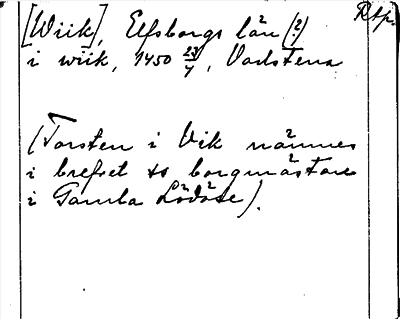 Rap.
[Wiik], Elfsborgs län (?)
i wiik, 1450 23/4, Vadstena
(Torsten i Vik nämnes
i brefvet ss borgmästare
i Gamla Lödöse).